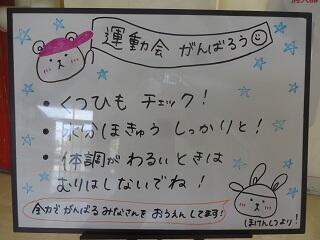 運動会 がんばろう
・くつひも チェック！
・水分ほきゅう しっかりと！
・体調が わるいときは
むりはしないでね！
全力でがんばる みなさんを おうえんしてます！
ほけんしつより！